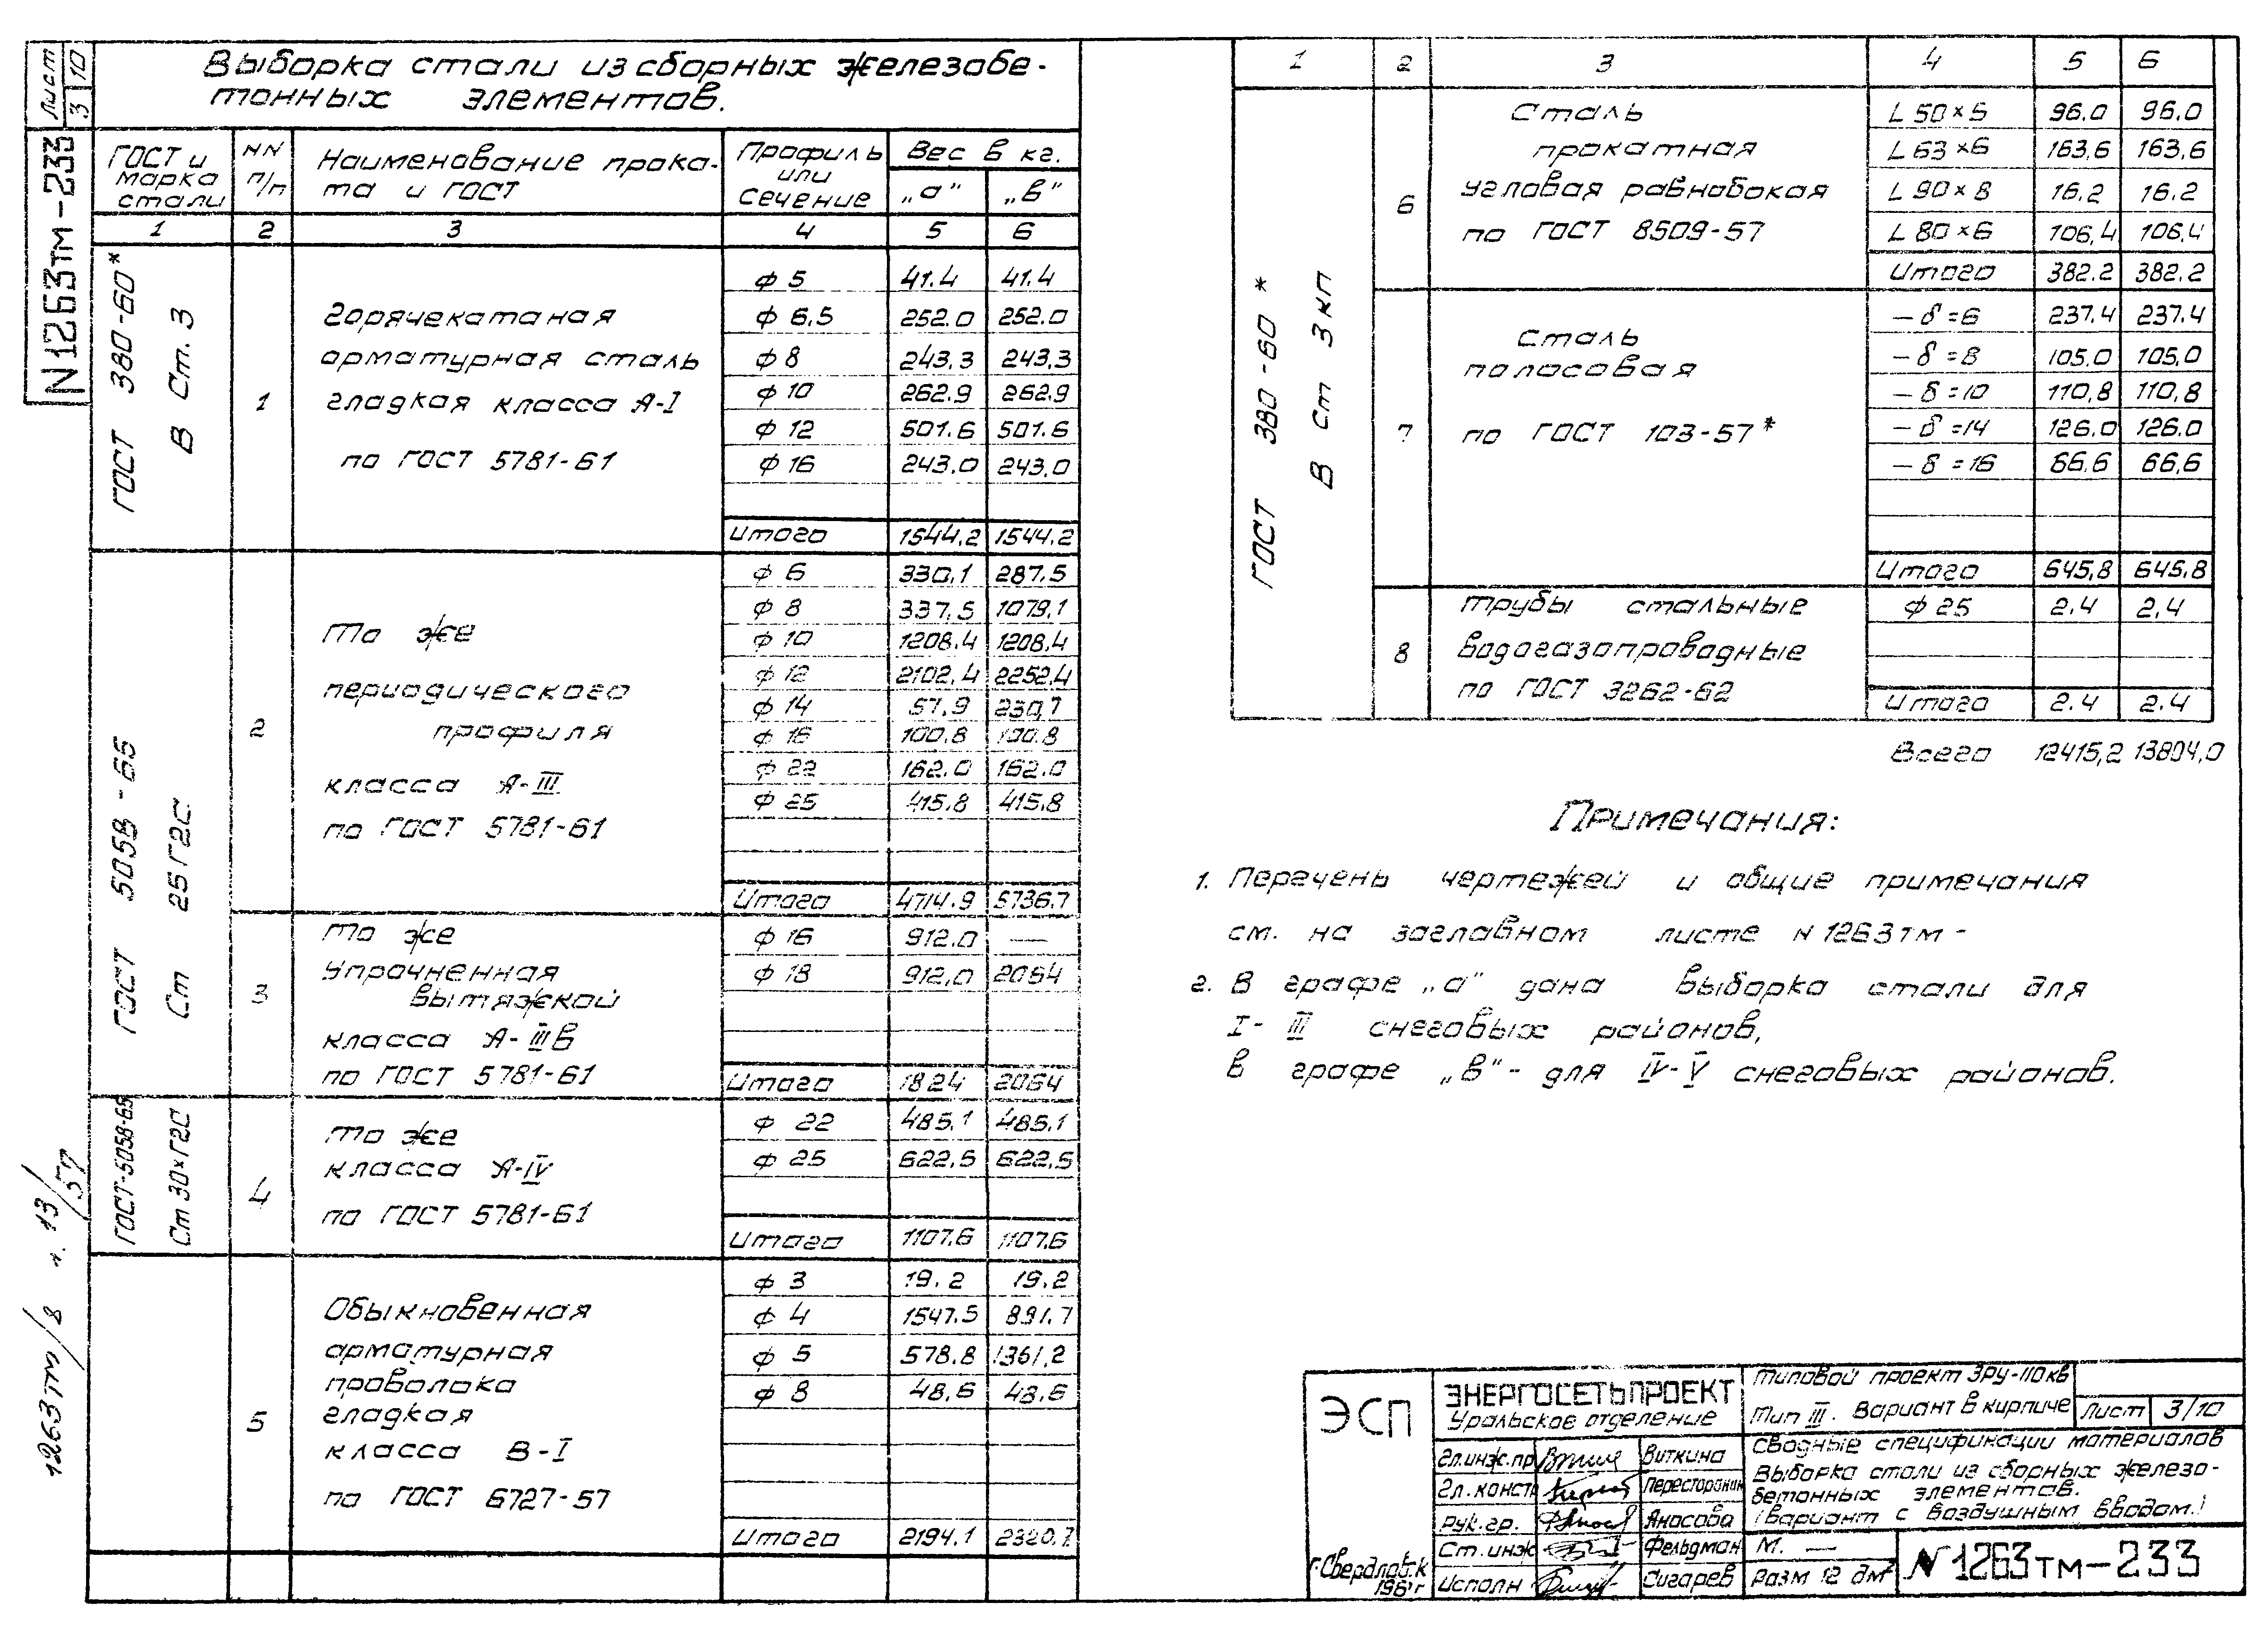 Лист
3 10
N1263тм-233
Выборка стали из сборных железобе-
тонных элементов.
ГОСТ и марка стали | NN п/п | Наименование прока-та и ГОСТ | Профиль или сечение | Вес в кг. „а" | „в"
1 2 3 4 5 6
ГОСТ 380-60*
В Ст. 3
1
Горячекатаная
арматурная сталь
гладкая класса А-I
по ГОСТ 5781-61
ф 5 41.4 41.4
ф 6,5 252.0 252.0
ф 8 243,3 243,3
ф 10 262.9 262.9
ф 12 501.6 501.6
ф 16 243.0 243.0
Итого 1544.2 1544.2
ГОСТ 5058-65
Ст 25Г2С
2
То же
периодического
профиля
класса А-III
по ГОСТ 5781-61
ф 6 330,1 287.5
ф 8 337,5 1079,1
ф 10 1208.4 1208.4
ф 12 2102,4 2252.4
ф 14 57.9 230,7
ф 16 100.8 100.8
ф 22 162.0 162.0
ф 25 415.8 415.8
Итого 4714.9 5736.7
3
То же
Упрочненная
вытяжкой
класса А-IIIв
по ГОСТ 5781-61
ф 16 912.0 —
ф 18 912,0 2054
Итого 1824 2054
ГОСТ-5058-65
Ст 30хГ2С
4
То же
класса А-IV
по ГОСТ 5781-61
ф 22 485.1 485.1
ф 25 622.5 622.5
Итого 1107.6 1107.6
5
Обыкновенная
арматурная
проволока
гладкая
класса В-I
по ГОСТ 6727-57
ф 3 19.2 19.2
ф 4 1547.5 891.7
ф 5 578.8 1361,2
ф 8 48,6 48,6
Итого 2194.1 2320.7
1263тм/8 л. 13/57
1 2 3 4 5 6
ГОСТ 380-60*
В Ст 3кп
6
Сталь
прокатная
угловая равнобокая
по ГОСТ 8509-57
L 50×5 96.0 96.0
L 63×6 163,6 163,6
L 90×8 16.2 16.2
L 80×6 106,4 106,4
Итого 382.2 382.2
7
Сталь
полосовая
по ГОСТ 103-57*
— δ=6 237.4 237.4
— δ=8 105.0 105,0
— δ=10 110,8 110,8
— δ=14 126.0 126.0
— δ=16 66.6 66,6
Итого 645,8 645.8
8
Трубы стальные
водогазопроводные
по ГОСТ 3262-62
ф 25 2.4 2,4
Итого 2.4 2.4
Всего 12415,2 13804,0
Примечания:
1. Перечень чертежей и общие примечания
см. на заглавном листе N 1263тм-
2. В графе „а" дана выборка стали для
I-III снеговых районов,
в графе „в"- для IV-V снеговых районов.
ЭСП
г. Свердловск
ЭНЕРГОСЕТЬПРОЕКТ
Уральское отделение
Типовой проект ЗРУ-110кв
Тип III. Вариант в кирпиче
Лист 3/10
Гл.инж.пр Виткина
Гл.констр
Рук.гр. Аносова
Ст.инж Фельдман
Исполн Сигарев
Сводные спецификации материалов
Выборка стали из сборных железо-
бетонных элементов.
(вариант с воздушным вводом.)
М. —
Разм 12 дм²
N1263тм-233